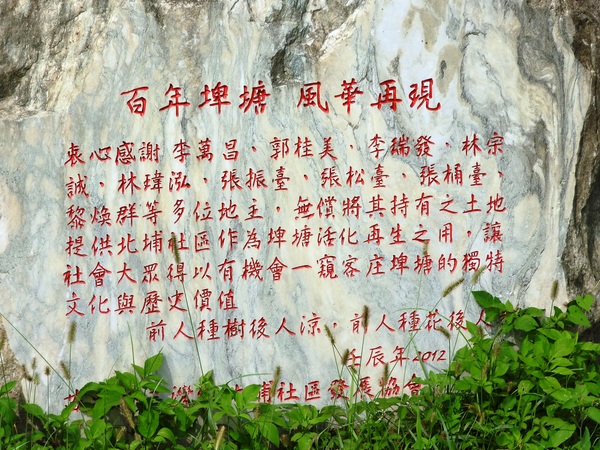 百年埤塘 風華再現
衷心感謝李萬昌、郭桂美、李瑞發、林宗
誠、林瑋泓、張振臺、張松臺、張桶臺、
黎煥群等多位地主，無償將其持有之土地
提供北埔社區作為埤塘活化再生之用，讓
社會大眾得以有機會一窺客庄埤塘的獨特
文化與歷史價值
前人種樹後人涼，前人種花後人
壬辰年2012
埔社區發展協會